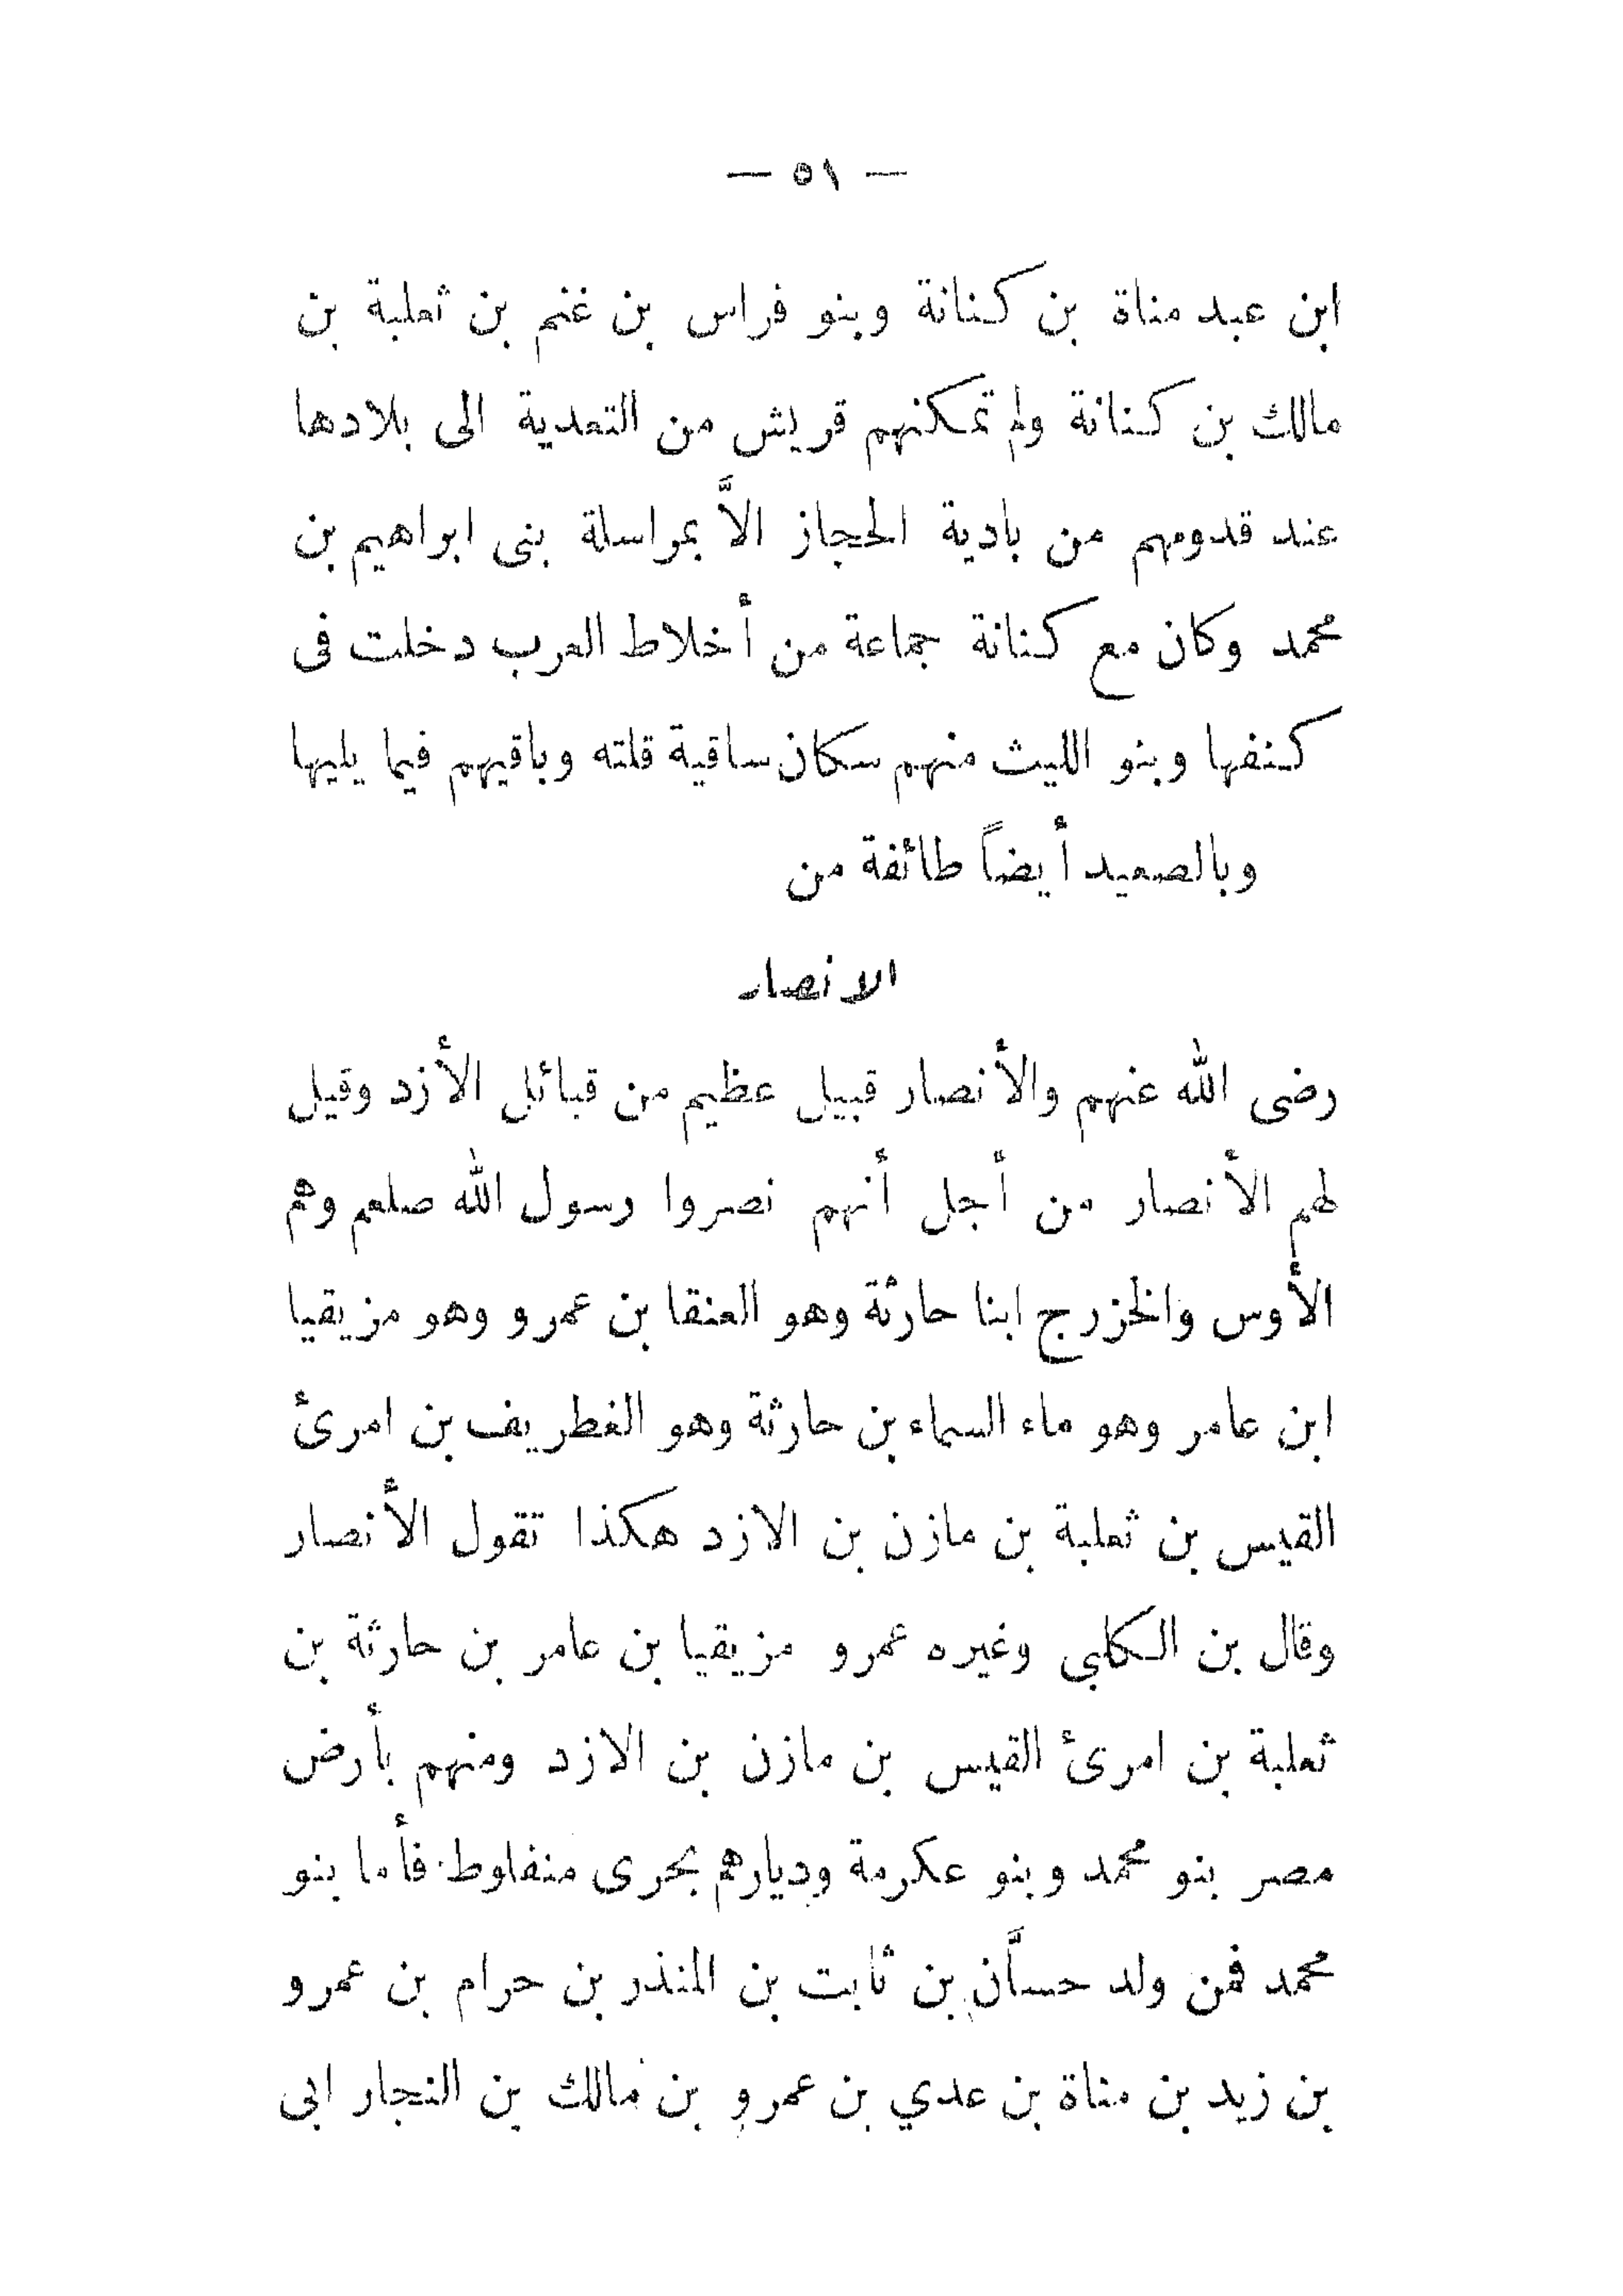 — ٥١ —
ابن عبد مناة بن كنانة وبنو فراس بن غنم بن ثعلبة بن
مالك بن كنانة ولم تمكنهم قريش من التعدية الى بلادها
عند قدومهم من بادية الحجاز الاَّ بمراسلة بنى ابراهيم بن
محمد وكان مع كنانة جماعة من أخلاط العرب دخلت فى
كنفها وبنو الليث منهم سكان ساقية قلته وباقيهم فيما يليها
وبالصعيد أيضاً طائفة من
الانصار
رضى الله عنهم والأنصار قبيل عظيم من قبائل الأزد وقيل
لهم الأنصار من أجل أنهم نصروا رسول الله صلعم وهم
الأوس والخزرج ابنا حارثة وهو العنقا بن عمرو وهو مزيقيا
ابن عامر وهو ماء السماء بن حارثة وهو الغطريف بن امرئ
القيس بن ثعلبة بن مازن بن الازد هكذا تقول الأنصار
وقال بن الكلبي وغيره عمرو مزيقيا بن عامر بن حارثة بن
ثعلبة بن امرئ القيس بن مازن بن الازد ومنهم بأرض
مصر بنو محمد وبنو عكرمة وديارهم بحرى منفلوط فأما بنو
محمد فمن ولد حسَّان بن ثابت بن المنذر بن حرام بن عمرو
بن زيد بن مناة بن عدي بن عمرو بن مالك بن النجار ابى